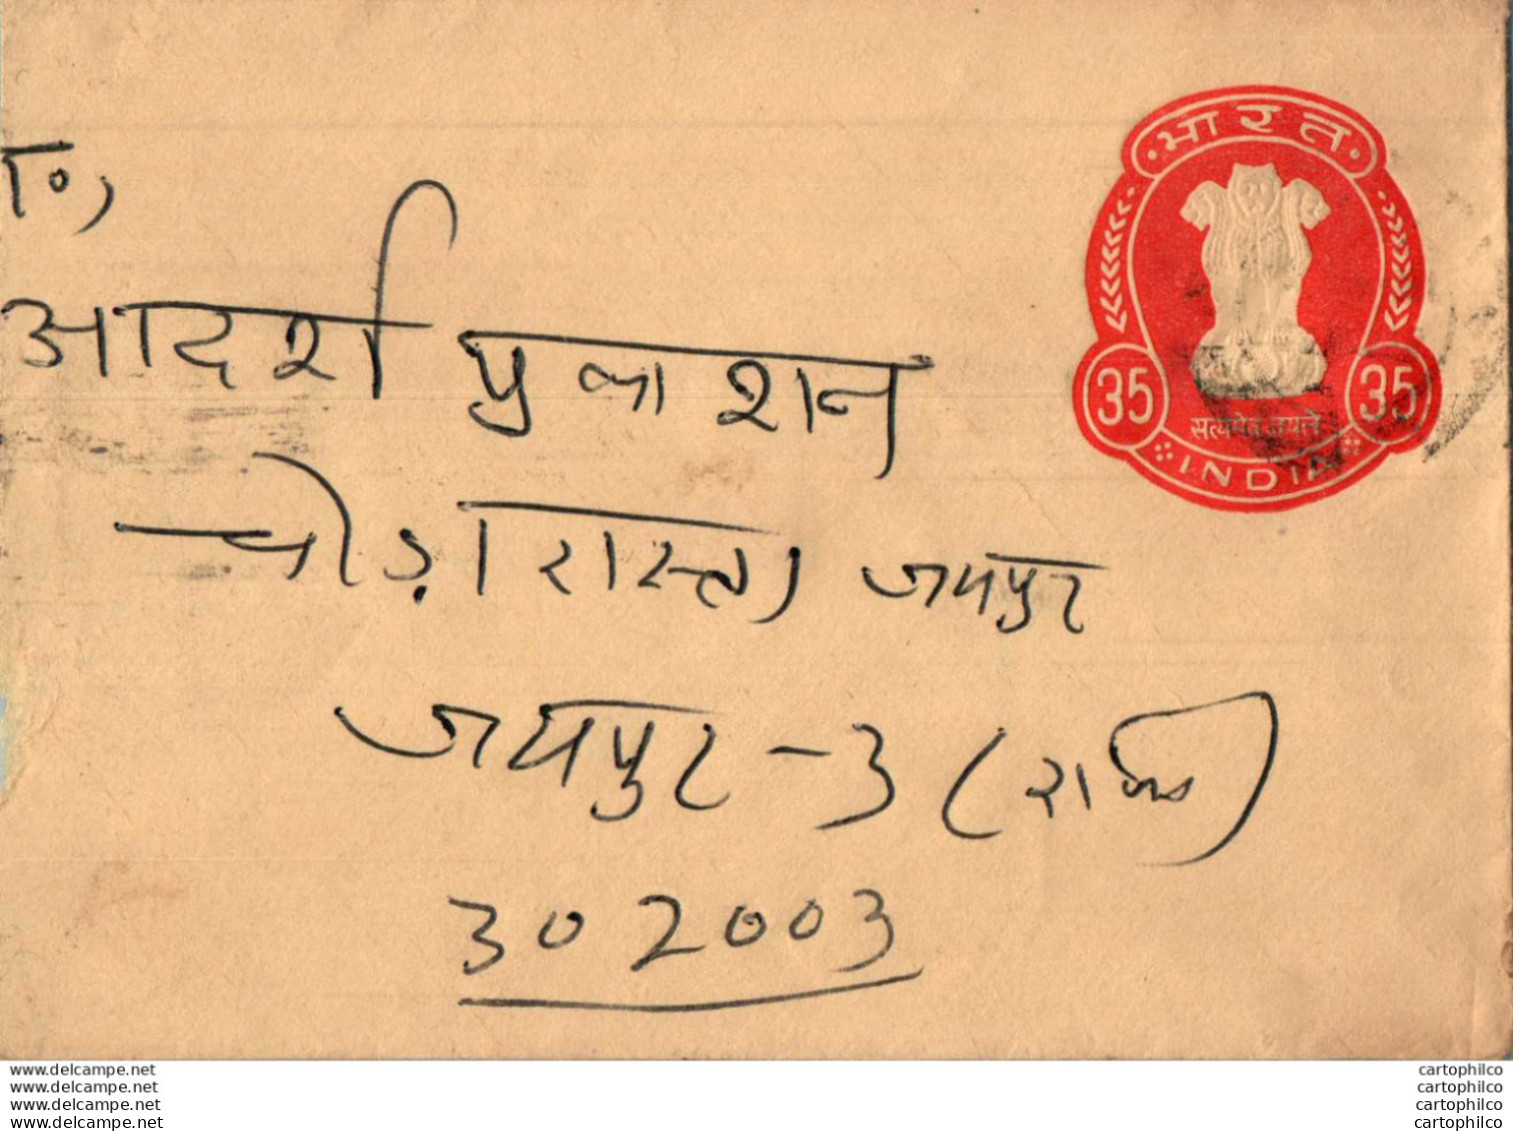 भारत
35 35
सत्यमेव जयते
INDIA
आदर्श प्रकाशन
चौड़ा रास्ता जयपुर
जयपुर - 3 (राज॰)
302003
www.delcampe.net
www.delcampe.net
www.delcampe.net
www.delcampe.net
cartophilco
cartophilco
cartophilco
cartophilco